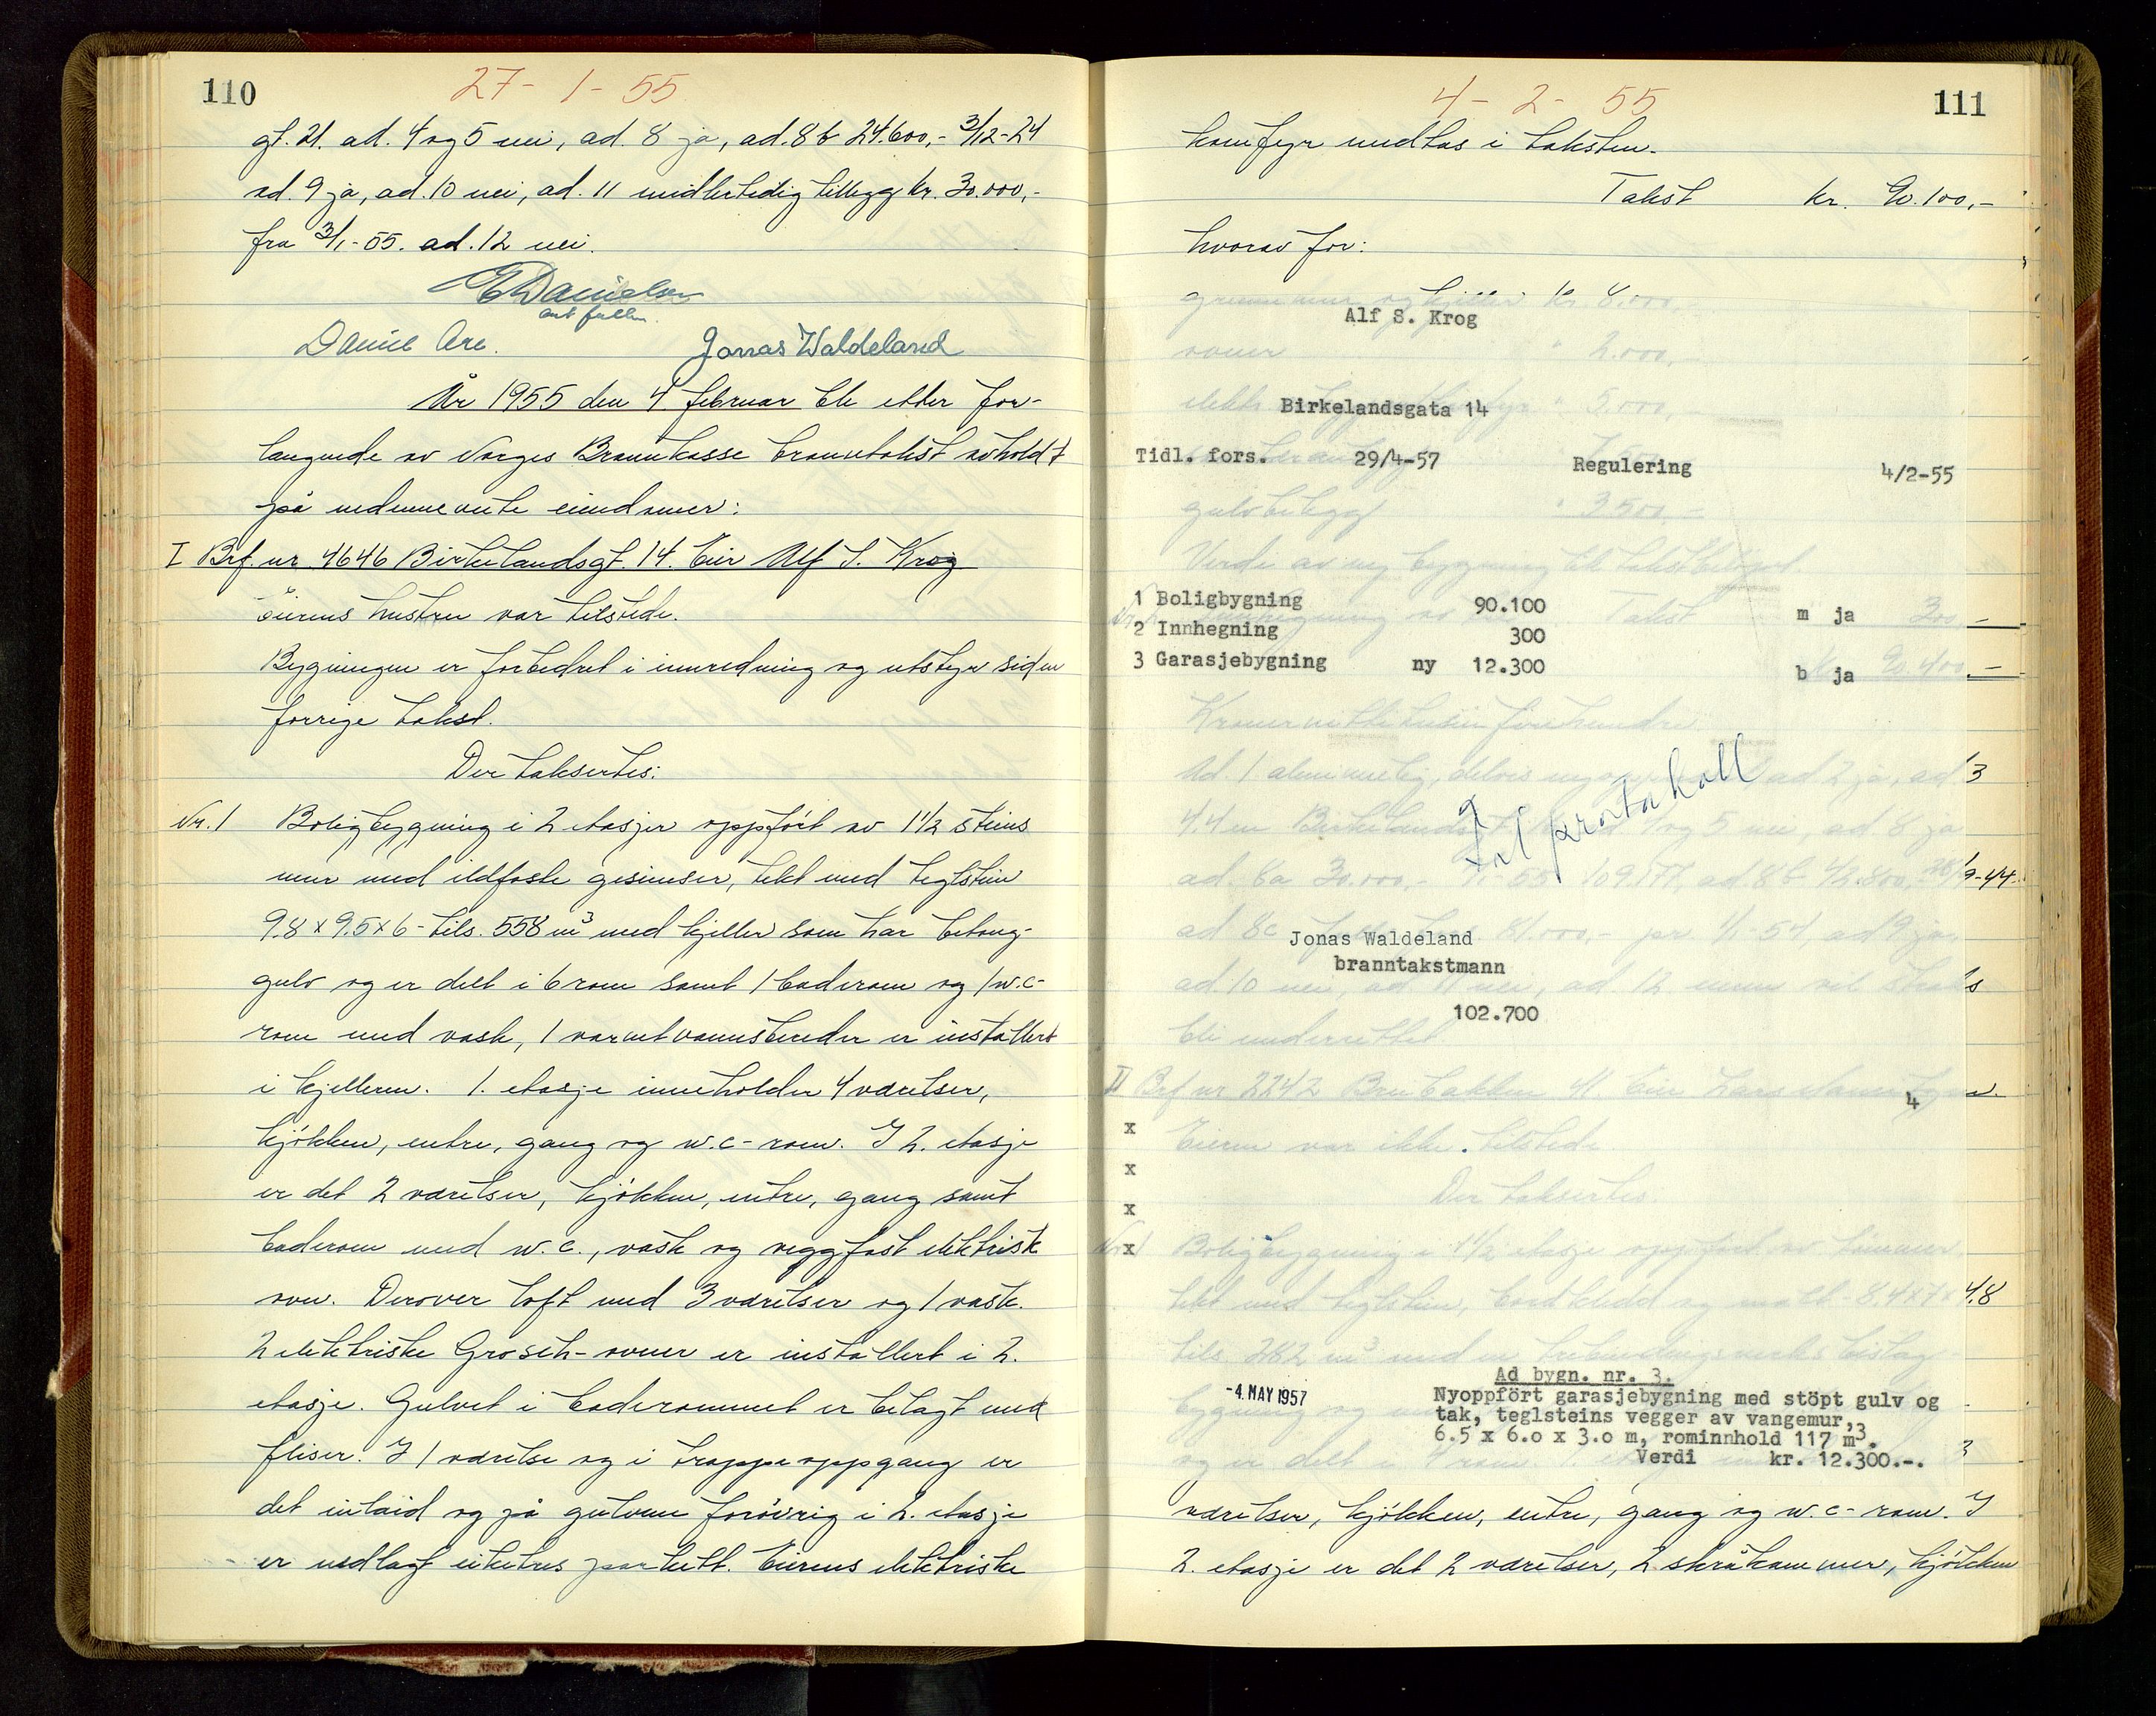 110
27 - 1 - 55
gt. 21. ad. 4 og 5 nei, ad. 8 ja, ad. 8 b 24.600,- 3/12-24
ad. 9 ja, ad. 10 nei, ad. 11 midlertidig tillegg kr. 30.000,-
fra 3/1-55. ad. 12 nei.
E Danielsen
Daniel Are.
Jonas Waldeland
År 1955 den 4. februar ble etter for-
langende av Norges Brannkasse branntakst avholdt
på nedennevnte eiendommer:
I Brf. nr 4646 Birkelandsgt. 14. Eier Alf S. Krog
Eierens hustru var tilstede.
Bygningen er forbedret i innredning og utstyr siden
forrige takst.
Der taksertes:
Nr. 1 Boligbygning i 2 etasjer oppført av 1 1/2 steins
mur med ildfaste gesimser, tekt med teglstein
9.8 x 9.5 x 6 - tils. 558 m3 med kjeller som har betong-
gulv og er delt i 6 rom samt 1 baderom og 1 w.c-
rom med vask, 1 varmtvannsbereder er installert
i kjelleren. 1. etasje inneholder 4 værelser,
kjøkken, entre, gang og w.c-rom. I 2. etasje
er det 2 værelser, kjøkken, entre, gang samt
baderom med w.c., vask og veggfast elektrisk
ovn. Derover loft med 3 værelser og 1 vask.
2 elektriske Grosch-ovner er installert i 2.
etasje. Gulvet i baderommet er belagt med
fliser. I 1 værelse og i trappeoppgang er
det inlaid og på gulvene forøvrig i 2. etasje
er nedlagt eiketres parkett. Eierens elektriske
111
4 - 2 - 55
komfyr medtas i taksten.
Takst kr. 90.100,-
hvorav for:
Alf S. Krog
Birkelandsgata 14
Tidl. fors. 29/4-57 Regulering 4/2-55
1 Boligbygning 90.100 m ja
2 Innhegning 300
3 Garasjebygning ny 12.300 b ja
Tal protokoll
Jonas Waldeland
branntakstmann
102.700
4
x
x
x
x
Ad bygn. nr. 3.
-4. MAY 1957
Nyoppfört garasjebygning med stöpt gulv og
tak, teglsteins vegger av vangemur,
6.5 x 6.o x 3.o m, rominnhold 117 m3.
Verdi kr. 12.300.-.
værelser, kjøkken, entre, gang og w.c-rom. I
2. etasje er det 2 værelser, 2 skråkammer, kjøkken